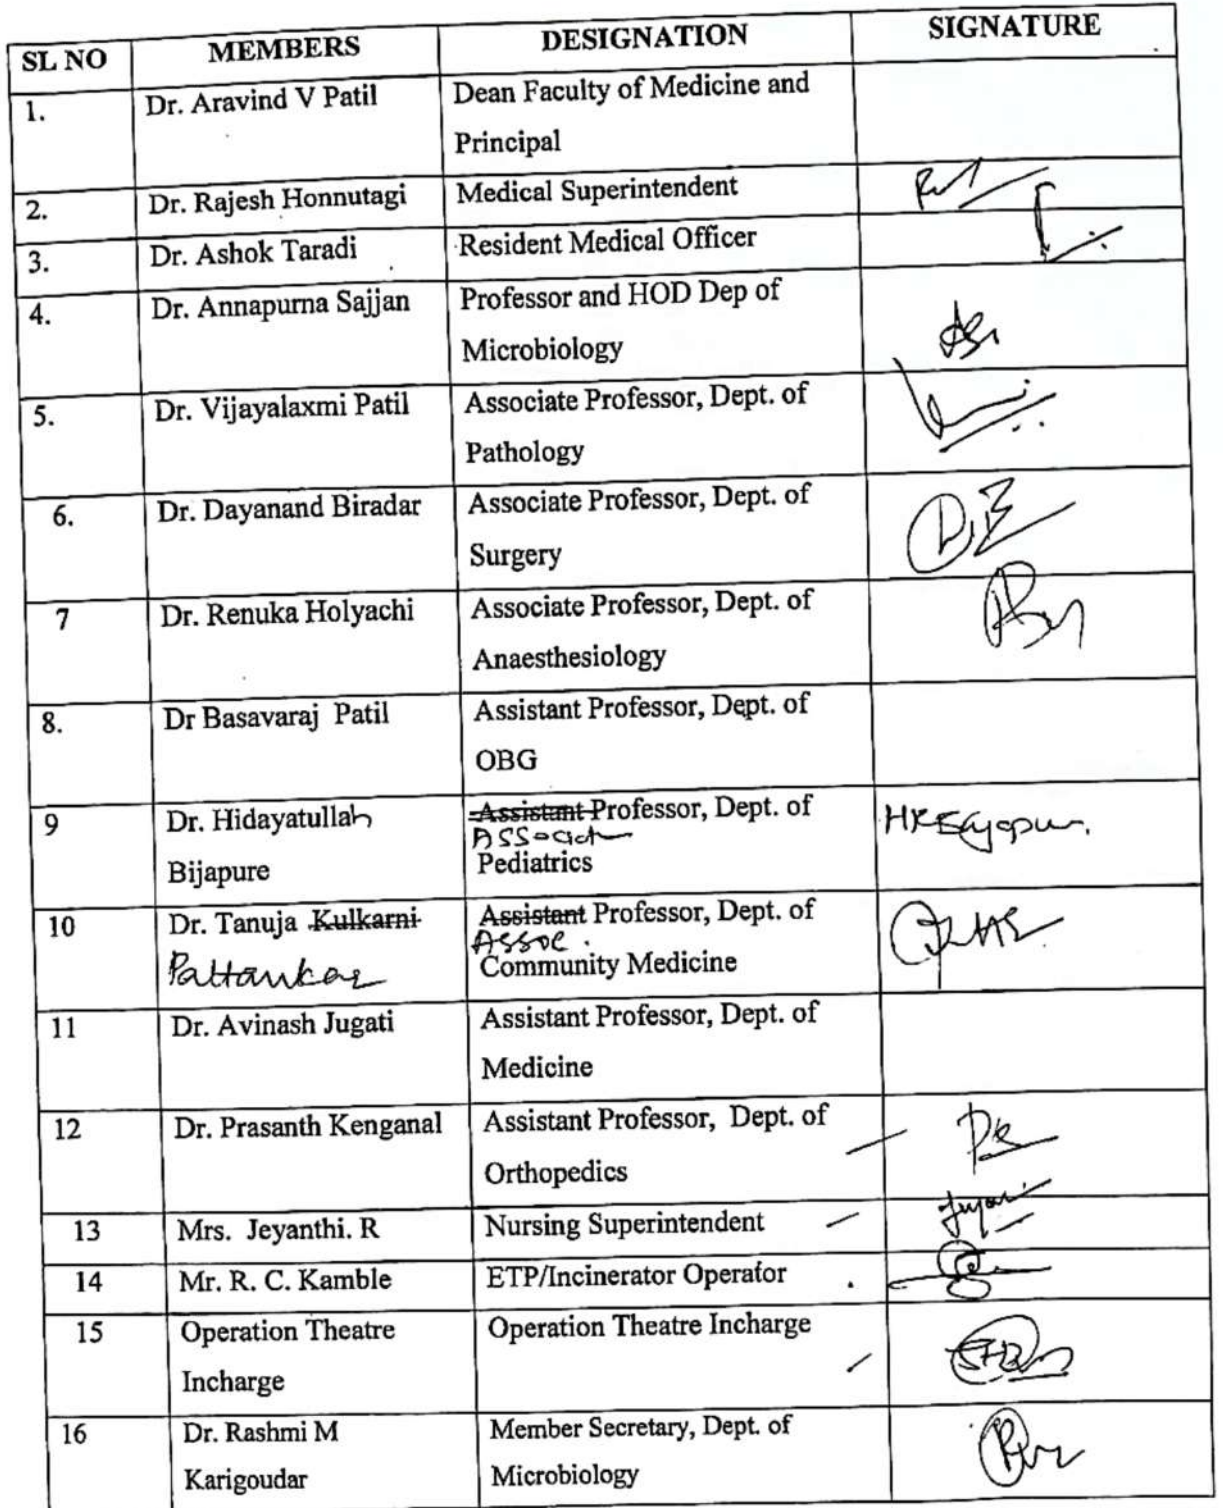 SL NO MEMBERS DESIGNATION SIGNATURE
1. Dr. Aravind V Patil Dean Faculty of Medicine and
Principal
2. Dr. Rajesh Honnutagi Medical Superintendent
3. Dr. Ashok Taradi Resident Medical Officer
4. Dr. Annapurna Sajjan Professor and HOD Dep of
Microbiology
5. Dr. Vijayalaxmi Patil Associate Professor, Dept. of
Pathology
6. Dr. Dayanand Biradar Associate Professor, Dept. of
Surgery
7 Dr. Renuka Holyachi Associate Professor, Dept. of
Anaesthesiology
8. Dr Basavaraj Patil Assistant Professor, Dept. of
OBG
9 Dr. Hidayatullah Assistant Professor, Dept. of
Bijapure Pediatrics
10 Dr. Tanuja Kulkarni Assistant Professor, Dept. of
Assoc.
Pattankar Community Medicine
11 Dr. Avinash Jugati Assistant Professor, Dept. of
Medicine
12 Dr. Prasanth Kenganal Assistant Professor, Dept. of
Orthopedics
13 Mrs. Jeyanthi. R Nursing Superintendent
14 Mr. R. C. Kamble ETP/Incinerator Operator
15 Operation Theatre Operation Theatre Incharge
Incharge
16 Dr. Rashmi M Member Secretary, Dept. of
Karigoudar Microbiology